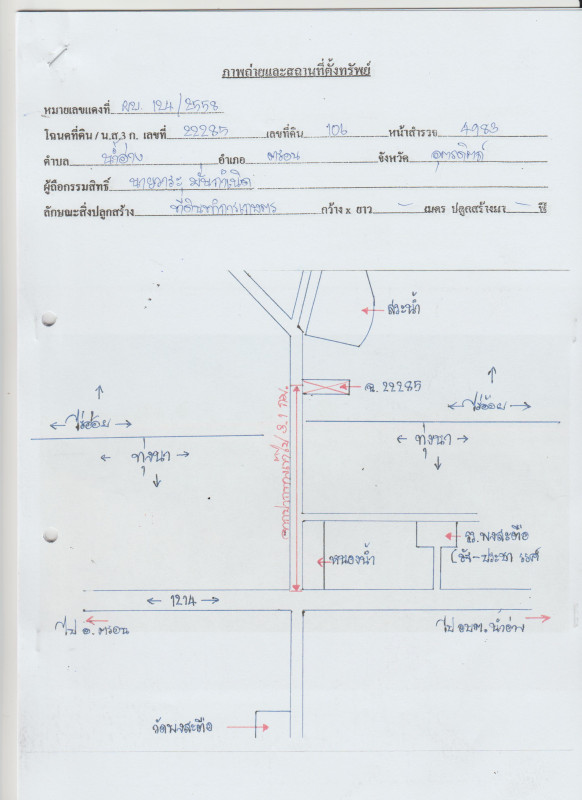 ภาพถ่ายและสถานที่ตั้งทรัพย์
หมายเลขแดงที่ ผบ. 124/2558
โฉนดที่ดิน / น.ส.3 ก. เลขที่ 22285 เลขที่ดิน 106 หน้าสำรวจ 4983
ตำบล น้ำอ่าง อำเภอ ตรอน จังหวัด อุตรดิตถ์
ผู้ถือกรรมสิทธิ์ นายวาระ
ลักษณะสิ่งปลูกสร้าง ที่ดินทำการเกษตร กว้าง x ยาว - เมตร ปลูกสร้างมา - ปี
สระน้ำ
ฉ. 22285
ไร่อ้อย
ไร่อ้อย
ทุ่งนา
ทุ่งนา
3.1 กม.
หนองน้ำ
ม. พงสะตือ
1214
ไป อ. ตรอน
ไป อบต. น้ำอ่าง
วัดพงสะตือ